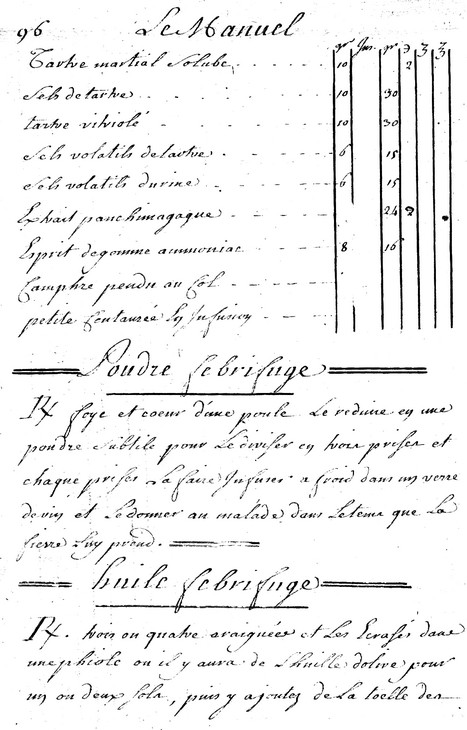 96 Le Manuel
gr Jus. gr ℈ ʒ ʒ
Tartre martial Solube 10 2
Sels de tartre 10 30
tartre vitriolé 10 30
Sels volatils de tartre 6 15
Sels volatils durine 6 15
Extrait panchimagaque 24 2
Esprit de gomme ammoniac 8 16
Camphre pendu au Col
petite Centaurée En Infusion
Poudre febrifuge
℞ foye et coeur d'une poule Le reduire en une
poudre Subtile pour Le diviser en trois prises et
chaque prises La faire Infuser a froid dans un verre
de vin et Le donner au malade dans Le tems que La
fievre Luy prend.
huile febrifuge
℞. trois ou quatre araignées et Les Ecrasés dans
une phiole ou il y aura de L'huille dolive pour
un ou deux sols, puis y ajoutez de La toille des